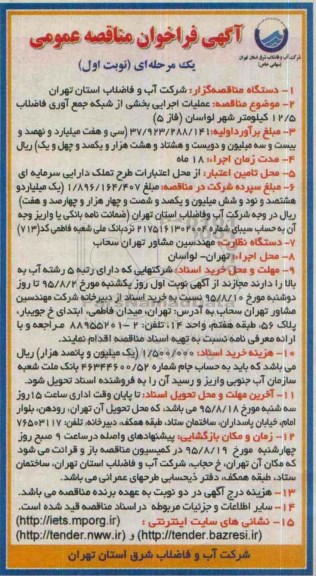 آگهی فراخوان مناقصه عمومی
یک مرحله‌ای (نوبت اول)
شرکت آب و فاضلاب شرق استان تهران
(سهامی خاص)
۱- دستگاه مناقصه‌گزار: شرکت آب و فاضلاب استان تهران
۲- موضوع مناقصه: عملیات اجرایی بخشی از شبکه جمع آوری فاضلاب
۱۲/۵ کیلومتر شهر لواسان (فاز ۵)
۳- مبلغ برآورداولیه: ۳۷/۹۲۳/۲۸۸/۱۴۱ (سی و هفت میلیارد و نهصد و
بیست و سه میلیون و دویست و هشتاد و هشت هزار و یکصد و چهل و یک) ریال
۴- مدت زمان اجرا: ۱۸ ماه
۵- محل تامین اعتبار: از محل اعتبارات طرح تملک دارایی سرمایه ای
۶- مبلغ سپرده شرکت در مناقصه: مبلغ ۱/۸۹۶/۱۶۴/۴۰۷ (یک میلیاردو
هشتصد و نود و شش میلیون و یکصد و شصت و چهار هزار و چهارصد و هفت)
ریال در وجه شرکت آب وفاضلاب استان تهران (ضمانت نامه بانکی یا واریز وجه
آن به حساب سیبای شماره ۲۱۷۵۱۶۱۳۰۲۰۰۲ نزدبانک ملی شعبه فاطمی کد(۷۱۳)
۷- دستگاه نظارت: مهندسین مشاور تهران سحاب
۸- محل اجرا: تهران- لواسان
۹- مهلت و محل خرید اسناد: شرکتهایی که دارای رتبه ۵ رشته آب به
بالا را دارند مجازند از آگهی نوبت اول روز یکشنبه مورخ ۹۵/۸/۲ تا روز
دوشنبه مورخ ۹۵/۸/۱۰ نسبت به خرید اسناد از دبیرخانه شرکت مهندسین
مشاور تهران سحاب به آدرس: تهران، میدان فاطمی، ابتدای خ جویبار،
پلاک ۵۶، طبقه هفتم، واحد ۱۴، تلفن: ۲-۸۸۹۵۵۲۰۱ مراجعه و با
ارائه معرفی نامه نسبت به تهیه اسناد مناقصه اقدام نمایند.
۱۰- هزینه خرید اسناد: ۱/۵۰۰/۰۰۰ (یک میلیون و پانصد هزار) ریال
می باشد که باید به حساب جام شماره ۴۶۳۴۴۶۰۰/۵۲ بانک ملت شعبه
سازمان آب جنوبی واریز و رسید آن را به فروشنده اسناد تحویل شود.
۱۱- آخرین مهلت و محل تحویل اسناد: تا پایان وقت اداری ساعت ۱۵ روز
سه شنبه مورخ ۹۵/۸/۱۸ می باشد، که محل تحویل آن تهران، رودهن، بلوار
امام، خیابان پاسداران، ساختمان ستاد، طبقه همکف، دبیرخانه، تلفن: ۷۶۵۰۳۱۱۷
۱۲- زمان و مکان بازگشایی: پیشنهادهای واصله درساعت ۹ صبح روز
چهارشنبه مورخ ۹۵/۸/۱۹ در کمیسیون مناقصه باز و قرائت می شود
که مکان آن تهران، خ حجاب، شرکت آب و فاضلاب استان تهران، ساختمان
ستاد، طبقه همکف، دفتر ذیحسابی طرحهای عمرانی می باشد.
۱۳- هزینه درج آگهی در دو نوبت به عهده برنده مناقصه می باشد.
۱۴- سایر اطلاعات و جزئیات مربوطه دراسناد مناقصه قید شده است.
۱۵- نشانی های سایت اینترنتی: (http://iets.mporg.ir)
(http://tender.bazresi.ir) و (http://tender.nww.ir)
شرکت آب و فاضلاب شرق استان تهران